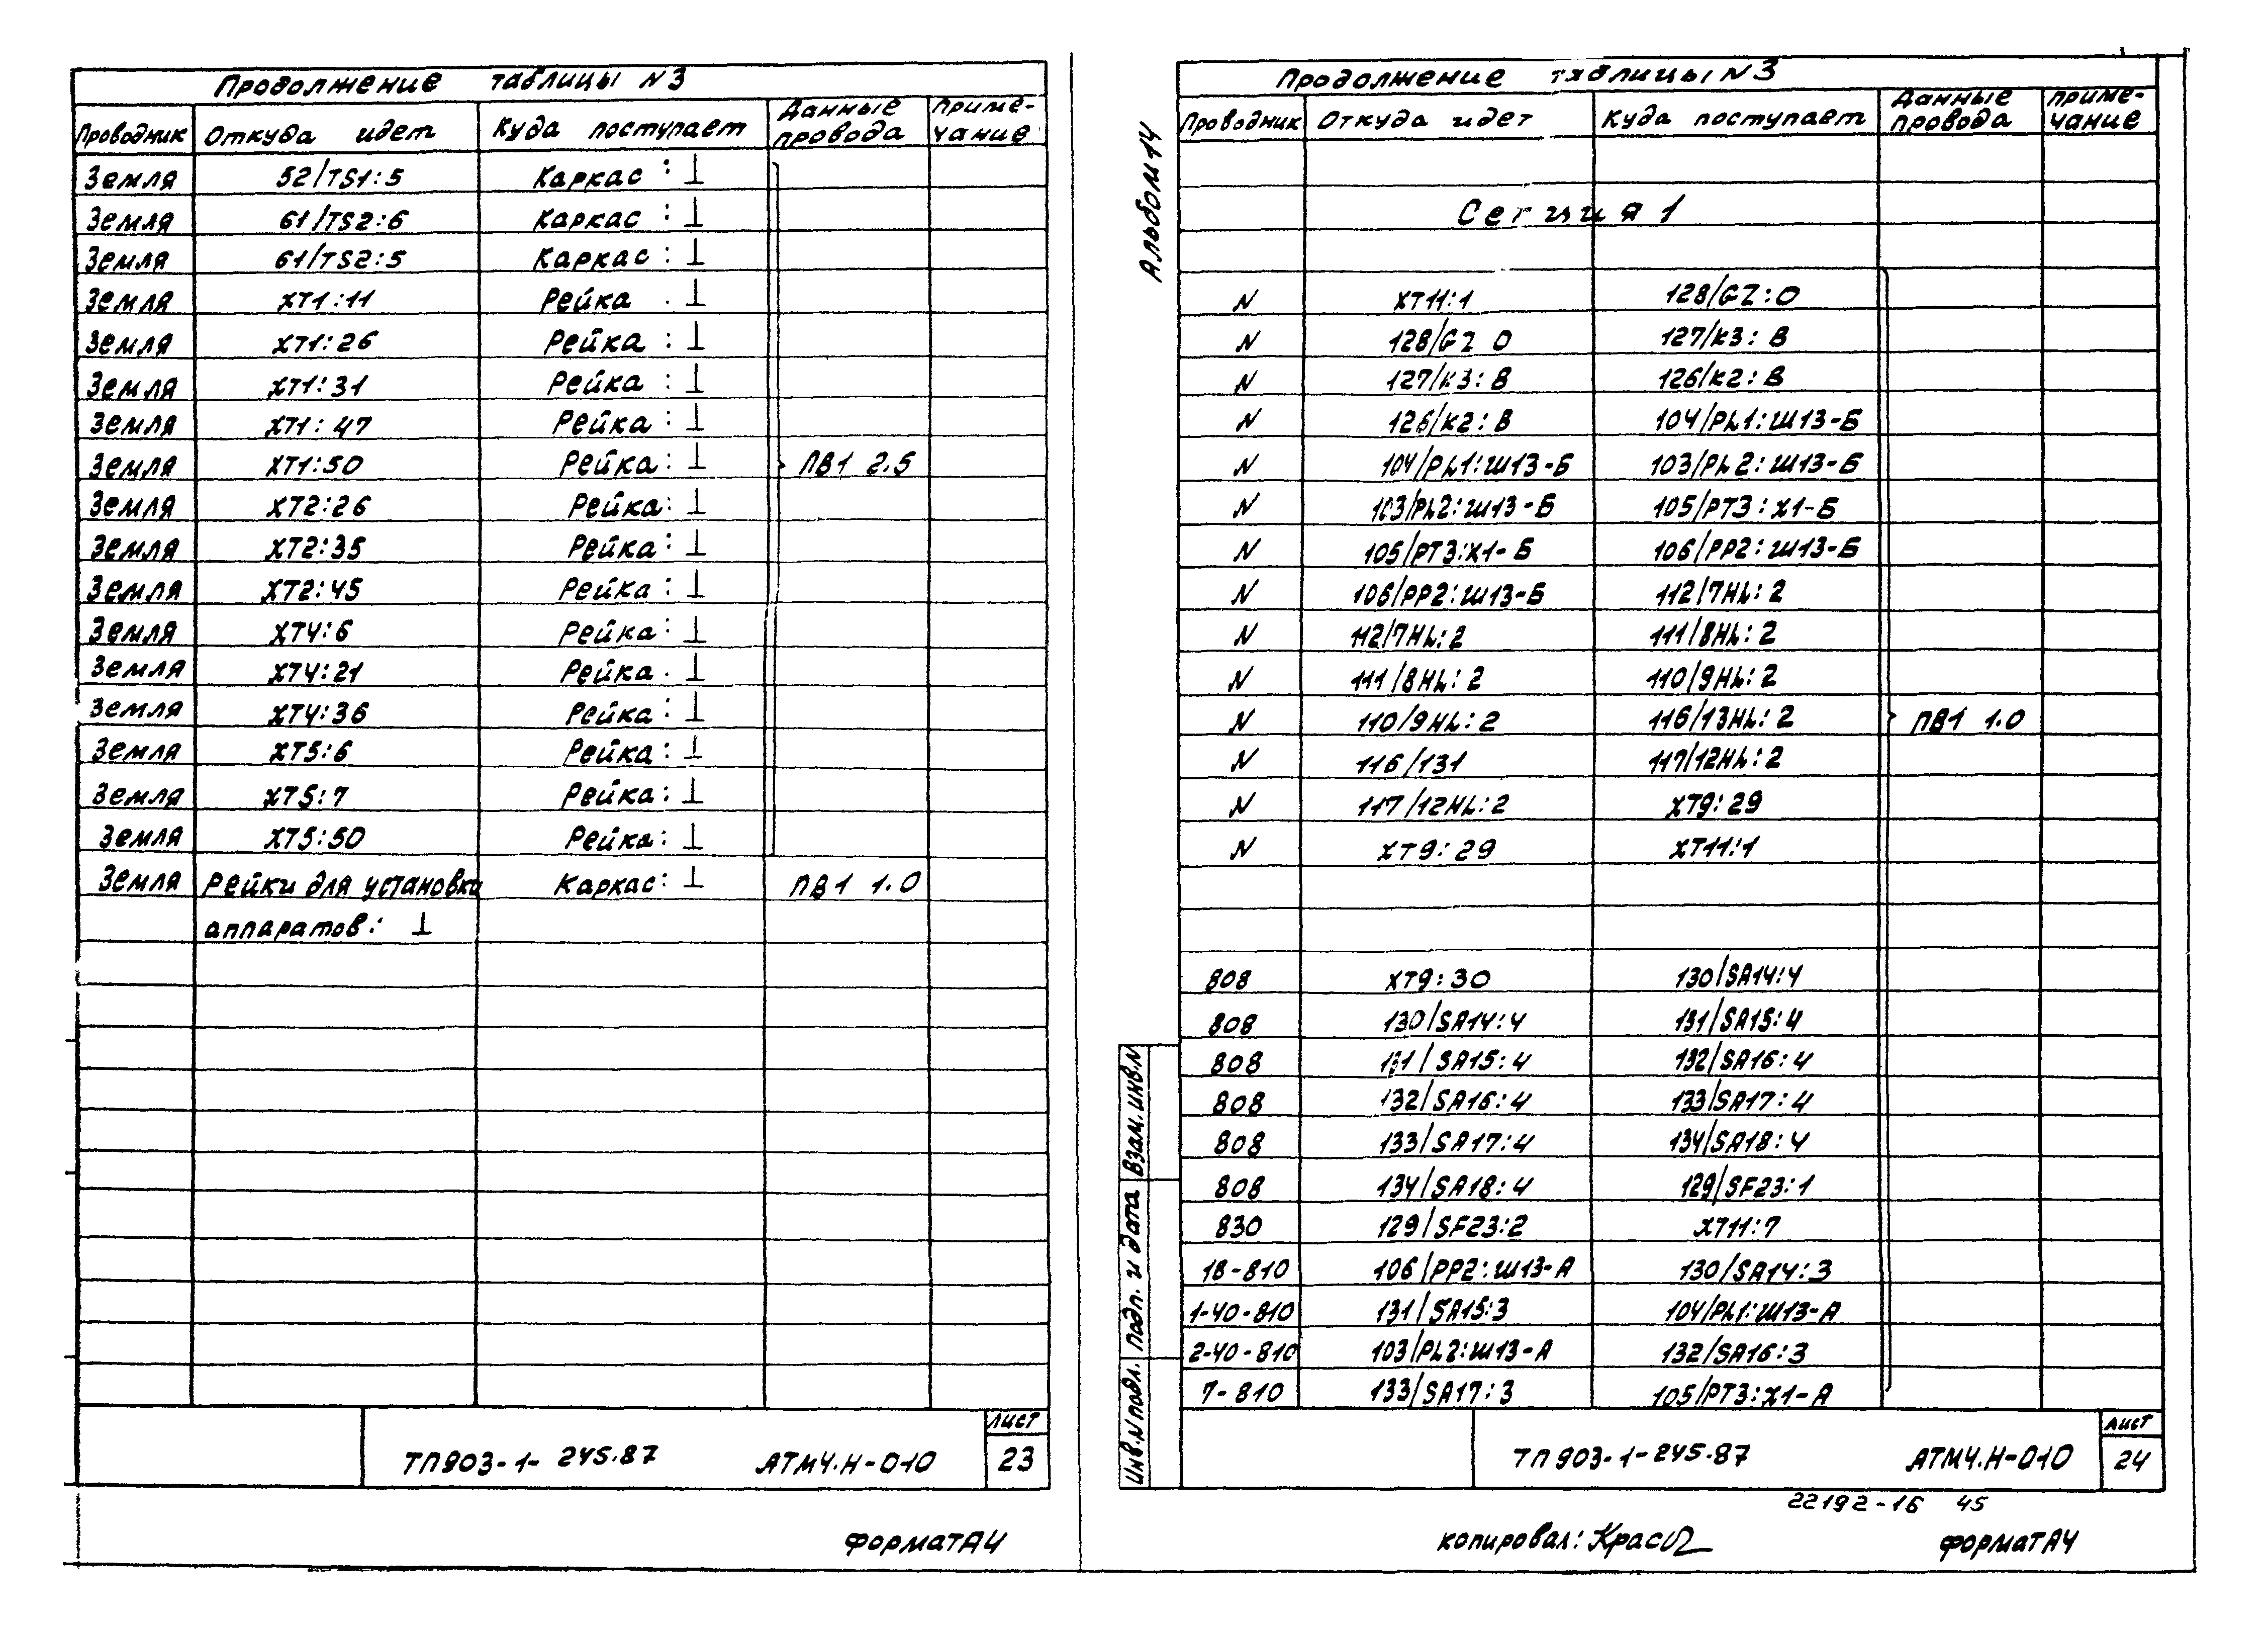 Продолжение таблицы N3
Проводник Откуда идет Куда поступает Данные провода Приме-чание
Земля 52/TS1:5 Каркас : ⊥
Земля 61/TS2:6 Каркас : ⊥
Земля 61/TS2:5 Каркас : ⊥
Земля XT1:11 Рейка . ⊥
Земля XT1:26 Рейка : ⊥
Земля XT1:31 Рейка : ⊥
Земля XT1:47 Рейка : ⊥
Земля XT1:50 Рейка : ⊥ ПВ1 2.5
Земля XT2:26 Рейка: ⊥
Земля XT2:35 Рейка: ⊥
Земля XT2:45 Рейка: ⊥
Земля XT4:6 Рейка: ⊥
Земля XT4:21 Рейка. ⊥
Земля XT4:36 Рейка: ⊥
Земля XT5:6 Рейка: ⊥
Земля XT5:7 Рейка: ⊥
Земля XT5:50 Рейка: ⊥
Земля Рейки для установки Каркас: ⊥ ПВ1 1.0
аппаратов: ⊥
Лист
ТП903-1-245.87 АТМ4.Н-010 23
Формат А4
Альбом 14
Продолжение таблицы N3
Проводник Откуда идет Куда поступает Данные провода Приме-чание
Секция 1
N XT11:1 128/GZ:0
N 128/GZ 0 127/K3: В
N 127/K3: В 126/K2: В
N 126/K2: В 104/PL1:Ш13-Б
N 104/PL1:Ш13-Б 103/PL2:Ш13-Б
N 103/PL2:Ш13-Б 105/PT3:X1-Б
N 105/PT3:X1-Б 106/PP2:Ш13-Б
N 106/PP2:Ш13-Б 112/7HL:2
N 112/7HL:2 111/8HL:2
N 111/8HL:2 110/9HL:2
N 110/9HL:2 116/13HL:2 ПВ1 1.0
N 116/131 117/12HL:2
N 117/12HL:2 XT9:29
N XT9:29 XT11:1
808 XT9:30 130/SA14:4
808 130/SA14:4 131/SA15:4
808 131/SA15:4 132/SA16:4
808 132/SA16:4 133/SA17:4
808 133/SA17:4 134/SA18:4
808 134/SA18:4 129/SF23:1
830 129/SF23:2 XT11:7
18-810 106/PP2:Ш13-А 130/SA14:3
1-40-810 131/SA15:3 104/PL1:Ш13-А
2-40-810 103/PL2:Ш13-А 132/SA16:3
7-810 133/SA17:3 105/PT3:X1-А
Инв.N подл. Подп. и дата Взам.инв.N
Лист
ТП903-1-245.87 АТМ4.Н-010 24
22192-16 45
копировал: Формат А4